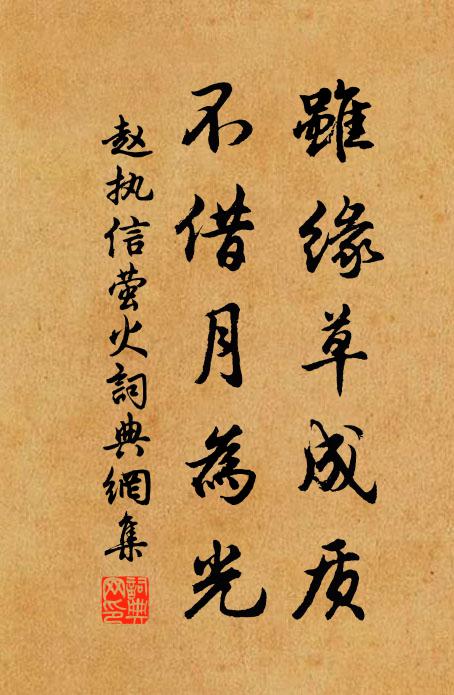 雖緣草成质
不借月為光
赵执信萤火詞典網集
詞典
网印